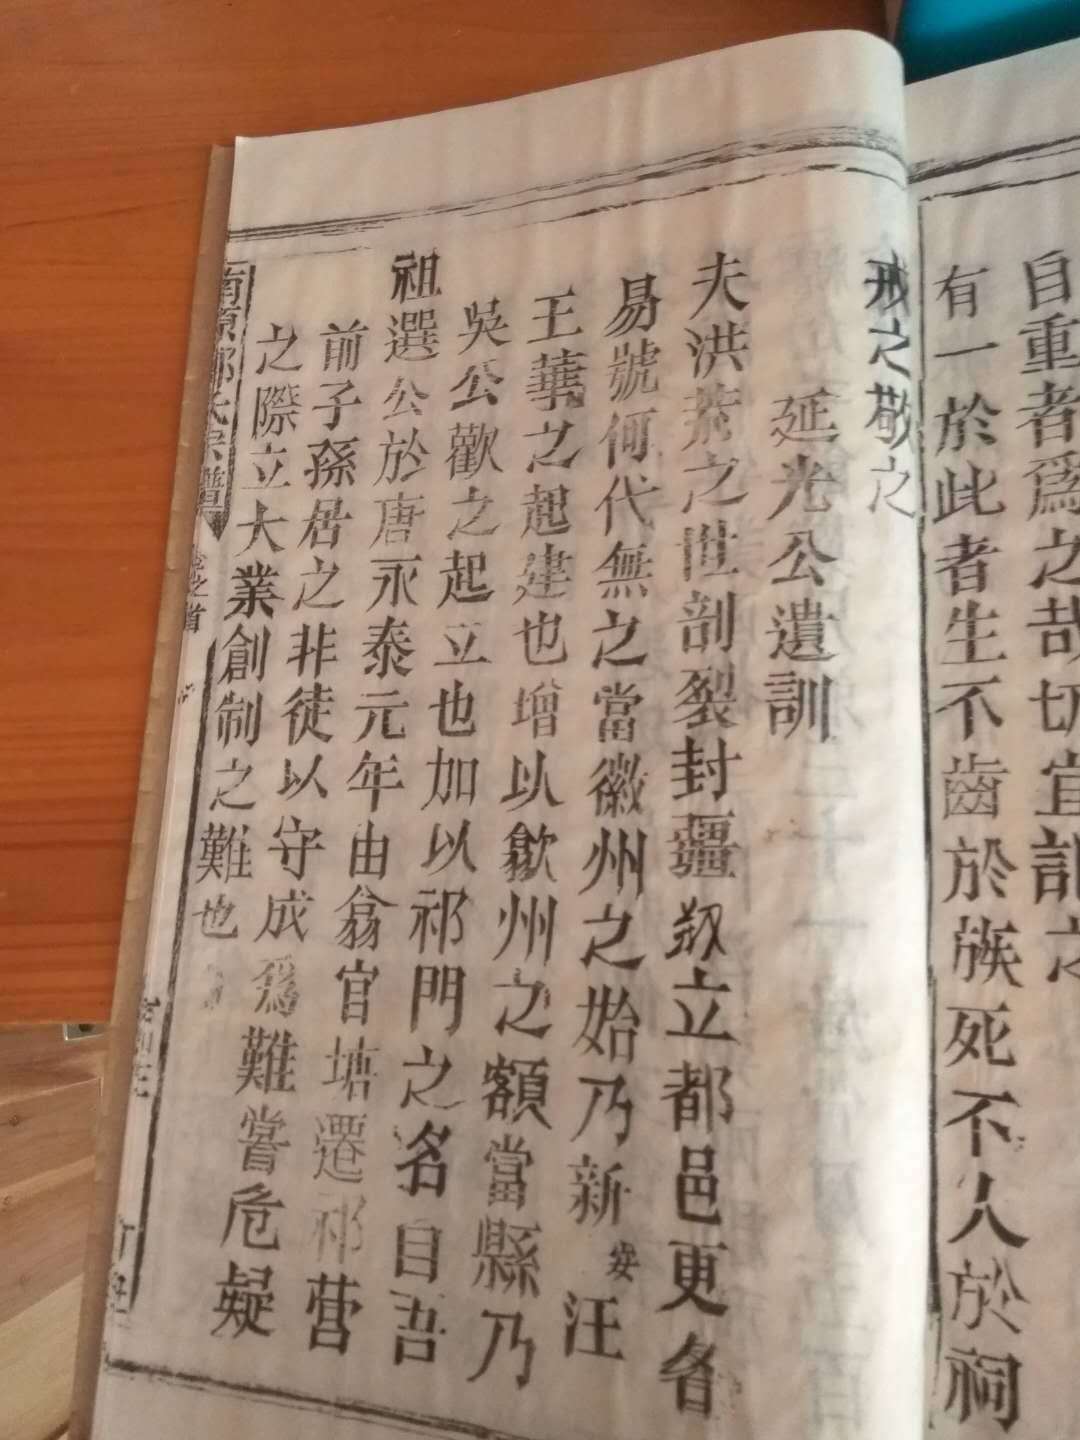 自重者爲之哉切宜記之
有一於此者生不齒於族死不人於祠
戒之敬之
延光公遺訓
夫洪荒之世剖裂封疆叙立都邑更名
易號何代無之當徽州之始乃新安汪
王華之起建也增以歙州之額當縣乃
吳公歡之起立也加以祁門之名自吾
祖選公於唐永泰元年由翕官塘遷祁营
前子孫居之非徒以守成爲難嘗危疑
之際立大業創制之難也
氏宗譜
之首